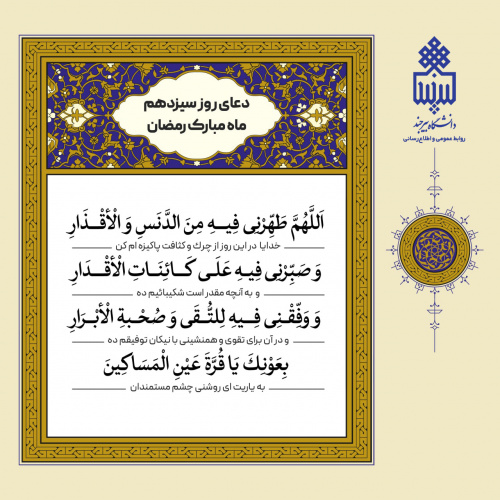 دعای روز سیزدهم
ماه مبارک رمضان
اَللَّهُمَّ طَهِّرْنِی فِیـهِ مِنَ الدَّنَسِ وَ الْأَقْـذَارِ
خدایا در این روز از چرك و كثافت پاكیزه ام كن
وَ صَبِّرْنِی فِیهِ عَلَـی کَـائِنَـاتِ الْأَقْـدَارِ
و به آنچه مقدر است شكیبائیم ده
وَ وَفِّقْـنِی فِـیهِ لِلتُّـقَی وَ صُحْبَةِ الْأَبْـرَارِ
و در آن برای تقوی و همنشینی با نیكان توفیقم ده
بِعَوْنِكَ یَا قُرَّةَ عَیْنِ الْمَسَاکِینَ
به یاریت ای روشنی چشم مستمندان
دانشگاه بیرجند
روابط عمومی و اطلاع‌رسانی